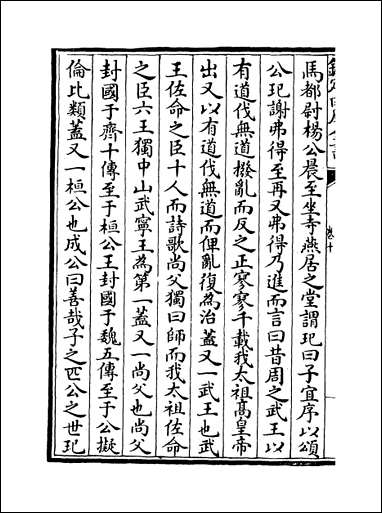 欽定四庫全書
卷十
馬都尉楊公晨至坐寺燕居之堂謂玘曰子宜序以頌
公玘謝弗得至再又弗得乃進而言曰昔周之武王以
有道伐無道撥亂而反之正寥寥千載我太祖高皇帝
出又以有道伐無道而俾亂復為治蓋又一武王也武
王佐命之臣十人而詩歌尚父獨曰師而我太祖佐命
之臣六王獨中山武寧王為第一蓋又一尚父也尚父
封國于齊十傳至于桓公王封國于魏五傳至于公擬
倫比類蓋又一桓公也成公曰善哉子之匹公之世玘